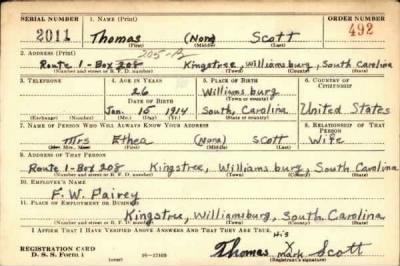 SERIAL NUMBER 1. NAME (Print) ORDER NUMBER
2011 Thomas (None) Scott 492
(First) (Middle) (Last)
2. ADDRESS (Print) 205-B
Route 1-Box 208 Kingstree, Williamsburg, South Carolina
(Number and street or R. F. D. number) (Town) (County) (State)
3. TELEPHONE 4. AGE IN YEARS 5. PLACE OF BIRTH 6. COUNTRY OF CITIZENSHIP
26 Williamsburg
DATE OF BIRTH (Town or county)
Jan. 15 1914 South, Carolina United States
(Exchange) (Number) (Mo.) (Day) (Yr.) (State or country)
7. NAME OF PERSON WHO WILL ALWAYS KNOW YOUR ADDRESS 8. RELATIONSHIP OF THAT PERSON
Mrs (None) Scott Wife
(Mr., Mrs., Miss) (First) (Middle) (Last)
9. ADDRESS OF THAT PERSON
Route 1-Box 208 Kingstree, Williamsburg, South Carolina
(Number and street or R. F. D. number) (Town) (County) (State)
10. EMPLOYER'S NAME
F. W. Pairey
11. PLACE OF EMPLOYMENT OR BUSINESS
Kingstree, Williamsburg, South Carolina
(Number and street or R. F. D. number) (Town) (County) (State)
I AFFIRM THAT I HAVE VERIFIED ABOVE ANSWERS AND THAT THEY ARE TRUE.
His
REGISTRATION CARD Thomas X Scott
D. S. S. Form 1 (over) Mark